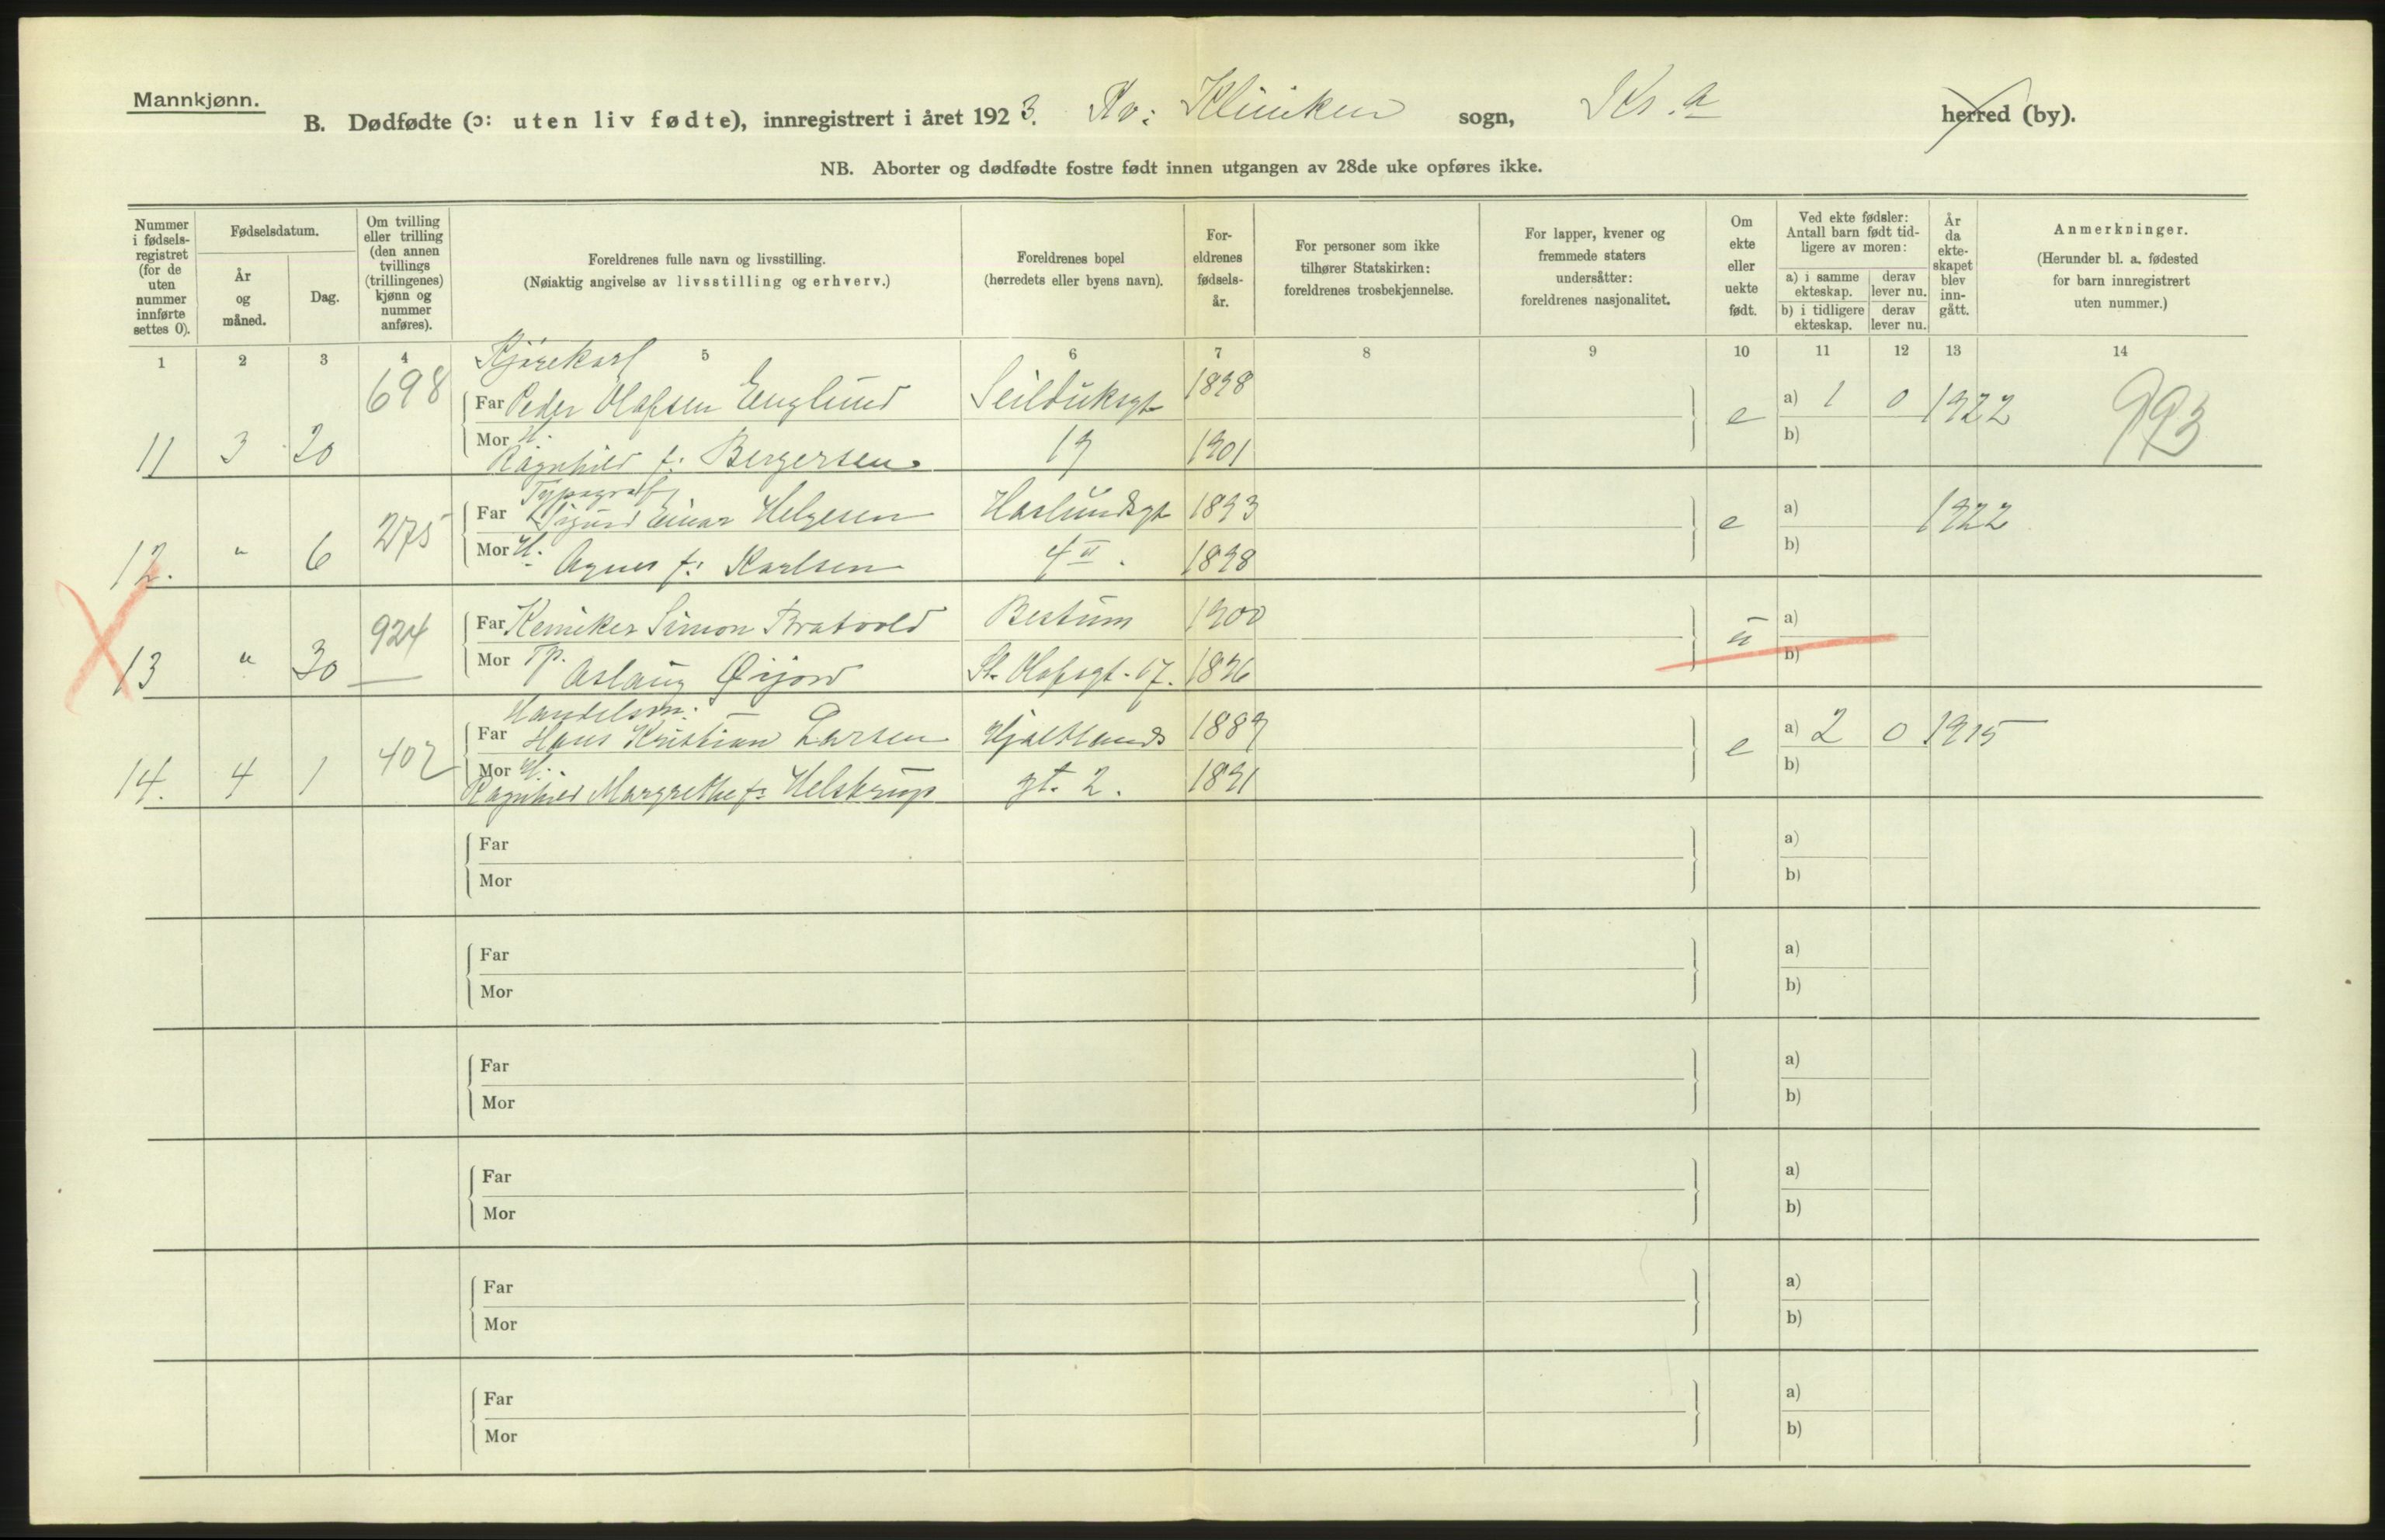 Mannkjønn.
B. Dødfødte (ɔ: uten liv fødte), innregistrert i året 1923. Kv: Kliniken sogn, Kr.a herred (by).
NB. Aborter og dødfødte fostre født innen utgangen av 28de uke opføres ikke.
Nummer i fødselsregistret (for de uten nummer innførte settes 0).
Fødselsdatum.
År og måned.
Dag.
Om tvilling eller trilling (den annen tvillings (trillingenes) kjønn og nummer anføres).
Foreldrenes fulle navn og livsstilling.
(Nøiaktig angivelse av livsstilling og erhverv.)
Foreldrenes bopel
(herredets eller byens navn).
Foreldrenes fødselsår.
For personer som ikke tilhører Statskirken: foreldrenes trosbekjennelse.
For lapper, kvener og fremmede staters undersåtter: foreldrenes nasjonalitet.
Om ekte eller uekte født.
Ved ekte fødsler: Antall barn født tidligere av moren:
a) i samme ekteskap. derav lever nu.
b) i tidligere ekteskap. derav lever nu.
År da ekteskapet blev inngått.
Anmerkninger.
(Herunder bl. a. fødested for barn innregistrert uten nummer.)
1 2 3 4 5 6 7 8 9 10 11 12 13 14
Kjørekarl
698 Far Peder Olafsen Englund Seilduksgt 1898 a) 1 0 1922 993
11 3 20 Mor H. Ragnhild f: Bergersen 19 1901 e b)
Typograf
275 Far Sigurd Einar Helgesen Haslundsgt 1893 a) 1922
12. " 6 Mor H. Agnes f: Karlsen 4 II. 1898 e b)
924 Far Kemiker Simon Bratvold Bestum 1900 a)
13 " 30 Mor Tp. Aslaug Øijord St. Olafsgt. 17. 1896 u b)
Handelsm.
402 Far Hans Kristian Larsen Hjaltlands 1889 a) 2 0 1915
14. 4 1 Mor H. Ragnhild Margrethe f: Helstrup gt. 2. 1891 e b)
Far a)
Mor b)
Far a)
Mor b)
Far a)
Mor b)
Far a)
Mor b)
Far a)
Mor b)
Far a)
Mor b)